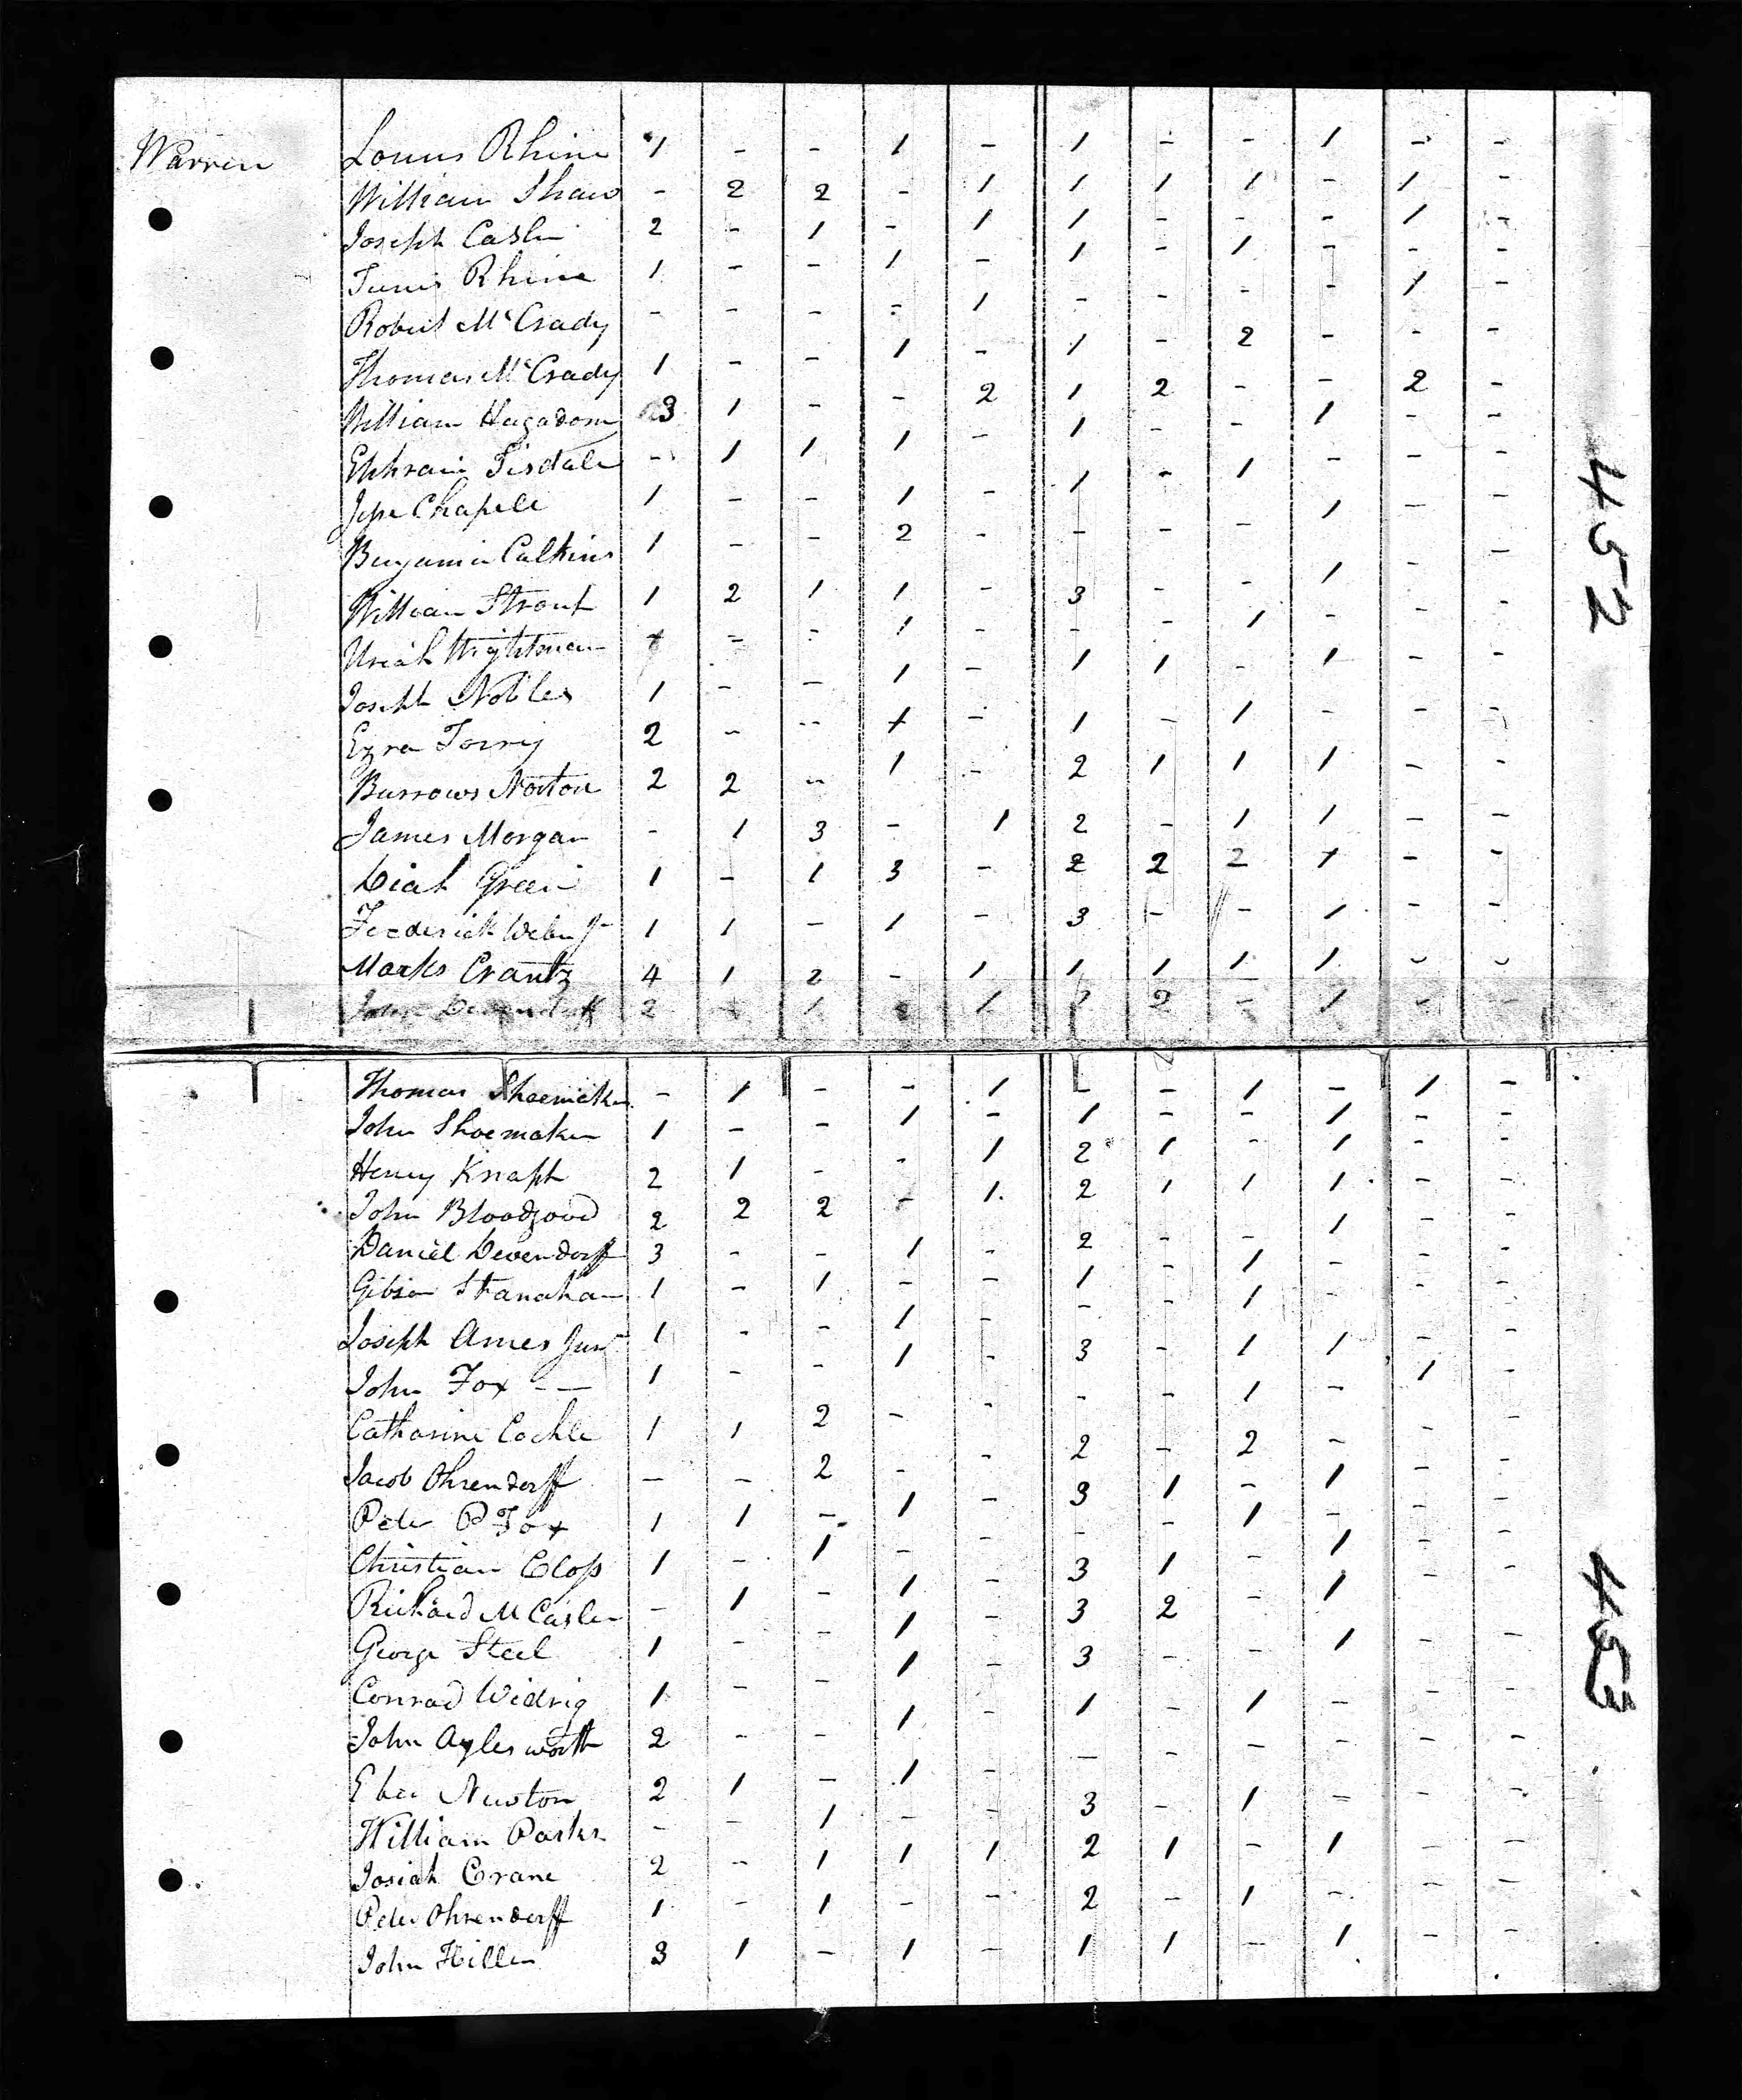 Warren Louus Rhine 1 - - 1 - 1 - - 1 - -
William Shaw - 2 2 - 1 1 1 1 - 1 -
Joseph Casler 2 - 1 - 1 1 - - - 1 -
Tunis Rhine 1 - - 1 - 1 - 1 - - -
Robert McCrady - - - - 1 - - - - 1 -
Thomas McCrady 1 - - 1 - 1 - 2 - - -
William Hagadorn 3 1 - - 2 1 2 - - 2 -
Ephraim Tisdale - 1 1 1 - 1 - - 1 - -
Jesse Chapell 1 - - 1 - 1 - 1 - - -
Benjamin Calkins 1 - - 2 - - - - 1 - -
452
William Strout 1 2 1 1 - 3 - - 1 - -
Uriah Wightman - - 1 - - - 1 - - -
Joseph Nobles 1 - - 1 - 1 1 - 1 - -
Ezra Torry 2 - - 1 - 1 - 1 - - -
Burrows Norton 2 2 - 1 - 2 1 1 1 - -
James Morgan - 1 3 - 1 2 - 1 1 - -
Diah Green 1 - 1 3 - 2 2 2 1 - -
Frederick Weber Jr 1 1 - 1 - 3 - - 1 - -
Marks Crantz 4 1 2 - 1 1 1 1 1 - -
John Devendorff 2 - 1 - 1 2 - 1 - -
Thomas Shoemaker - 1 - - 1 - - 1 - 1 -
John Shoemaker 1 - - 1 - 1 - - 1 - -
Henry Knapp 2 1 - - 1 2 1 - 1 - -
John Bloodgood 2 2 2 - 1 2 1 1 1 - -
Daniel Devendorff 3 - - 1 - 2 - - 1 - -
Gibson Stranahan 1 - 1 - - 1 - 1 - - -
Joseph Ames Junr 1 - - 1 - - - 1 - - -
John Fox - — 1 - - 1 - 3 - 1 1 - -
Catharine Cochle 1 1 2 - - - - 1 - 1 -
Jacob Ohrendorff - - 2 - - 2 - 2 - - -
Peter P Fox 1 1 - 1 - 3 1 - 1 - -
Christian Closs 1 - 1 - - - - 1 - - -
Richard McCasler - 1 - 1 - 3 1 - 1 - -
453
George Steel 1 - - 1 - 3 2 - 1 - -
Conrad Widrig 1 - - 1 - 3 - - 1 - -
John Aylesworth 2 - - 1 - 1 - 1 - - -
Eber Newton 2 1 - 1 - - - - - - -
William Parker - - 1 - - 3 - 1 - - -
Josiah Crane 2 - 1 1 1 2 1 - 1 - -
Peter Ohrendorff 1 - 1 - - 2 - 1 - - -
John Hiller 3 1 - 1 - 1 1 - 1 - -